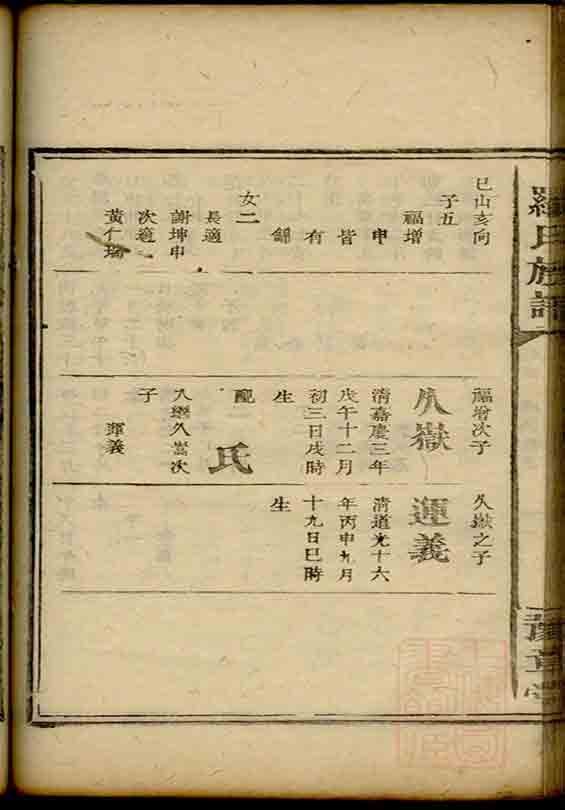 羅氏族譜
豫章堂
巳山亥向
子五
福增
申
皆
有
錦
女二
長適
謝坤申
次適
黃仁瑞
福增次子
久嶽
清嘉慶三年
戊午十二月
初三日戌時
生
配
氏
入繼久嵩次
子
運義
久嶽之子
運義
清道光十六
年丙申九月
十九日巳時
生